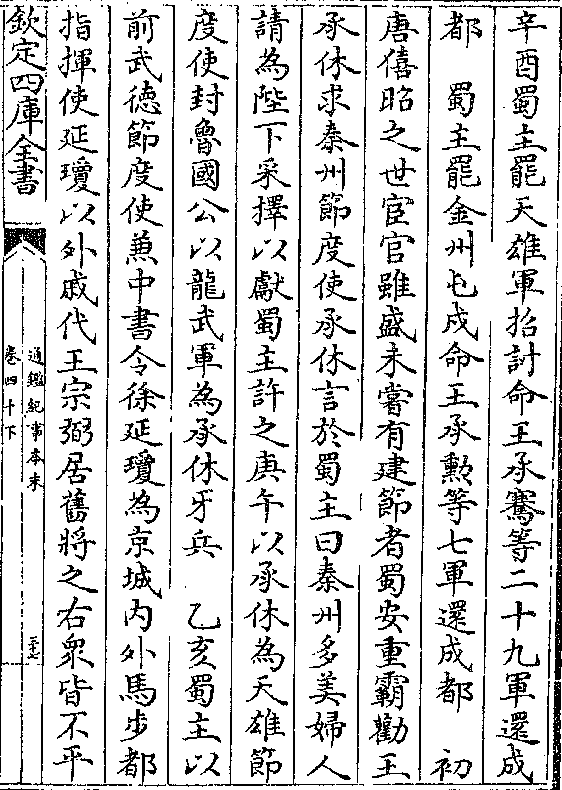 辛酉蜀主罷天雄軍招討命王承騫等二十九軍還成
都　蜀主罷金州屯戍命王承勲等七軍還成都　初
唐僖昭之世宦官雖盛未嘗有建節者蜀安重霸勸王
承休求秦州節度使承休言於蜀主曰秦州多美婦人
請為陛下采擇以獻蜀主許之庚午以承休為天雄節
度使封魯國公以龍武軍為承休牙兵　乙亥蜀主以
前武徳節度使兼中書令徐延瓊為京城内外馬步都
指揮使延瓊以外戚代王宗弼居舊將之右衆皆不平
欽定四庫全書
通鑑紀事本末
卷四十下